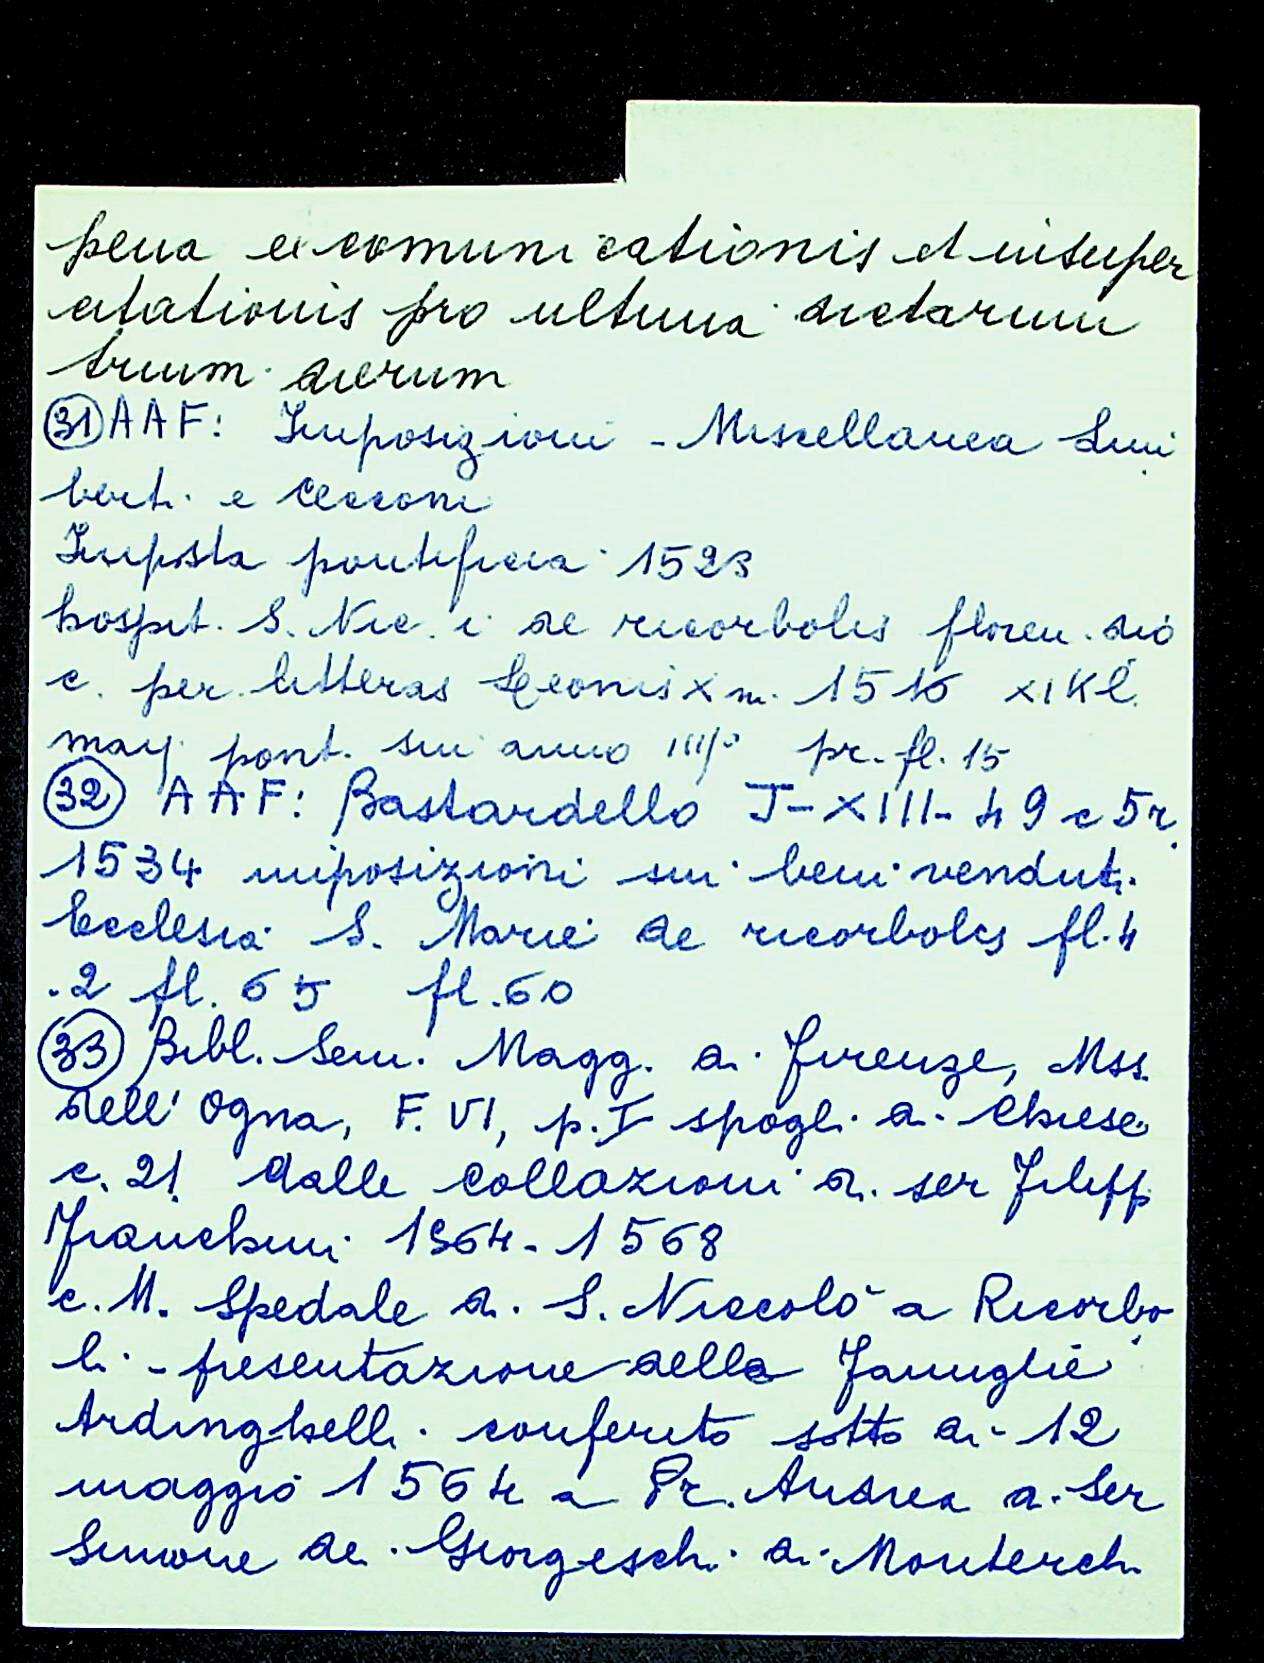 pena excomunicationis et insuper
citationis pro ultima dictarum
trium dierum
(31) AAF: Imposizioni - Miscellanea Lini
berti e Cecconi
Imposta pontificia 1523
hospit. S. Nic. i de ricorbolis floren. dio
c. per litteras Leonis X m. 1516 XI Kl.
maij pont. sui anno IIII° pr. fl. 15
(32) AAF: Bastardello J-XIII-49 c 5r.
1534 imposizioni sui beni venduti.
Ecclesia S. Marie de ricorbolis fl. 4
.2 fl. 65 fl. 60
(33) Bibl. Sem. Magg. di Firenze, Mss.
dell'Ogna, F. VI, p. I spogli di Chiese
c. 21 dalle collazioni di ser Filipp
Franchini 1564-1568
c. M. Spedale di S. Niccolò a Ricorbo
li - presentazione della Famiglie
Ardinghelli conferito sotto di 12
maggio 1564 a Pr. Andrea di Ser
Simone de Giorgeschi di Monterchi